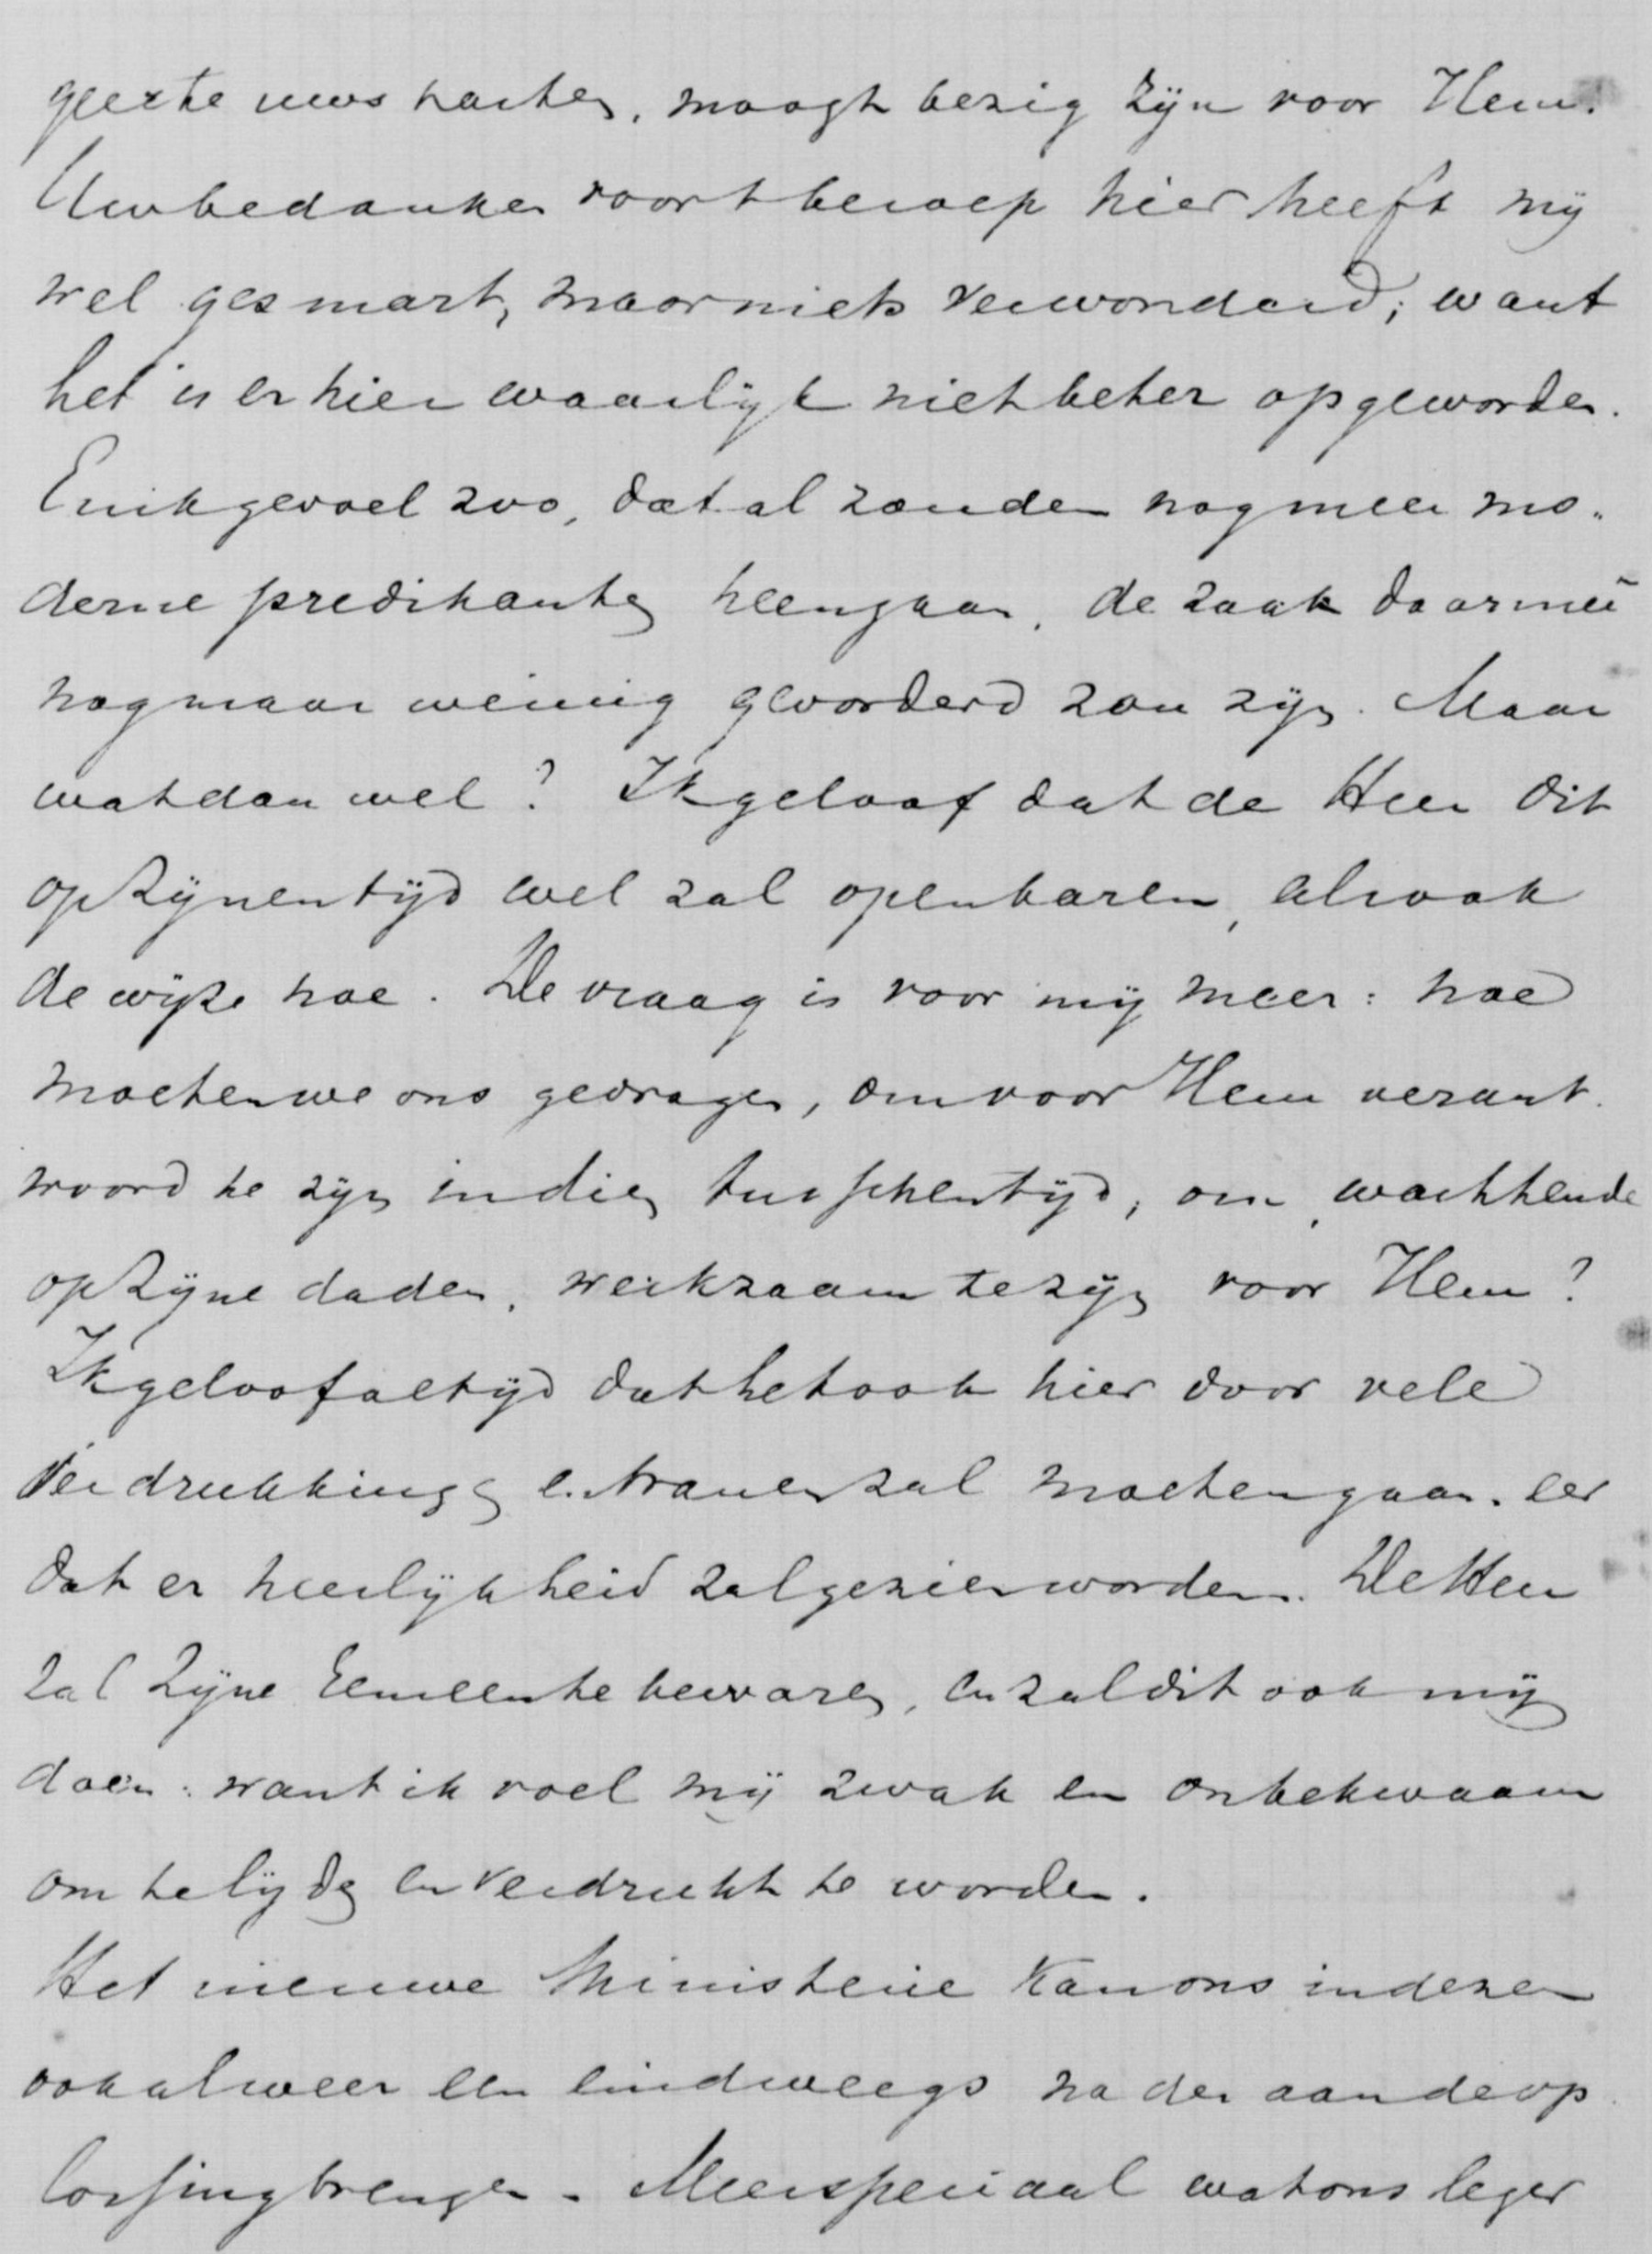 geeste uws harten, moogt bezig zijn voor Hem.
Uw bedanken voor 't beroep hier heeft mij
wel gesmart, maar niets verwonderd; want
het is er hier waarlijk niet beter op geworden.
En ik gevoel zoo, dat al zouden nog meer mo-
derne predikanten heengaan, de zaak daarmeê
nog maar weinig gevorderd zou zijn. Maar
wat dan wel? Ik geloof dat de Heer dit
op Zijnen tijd wel zal openbaren, als ook
de wijze hoe. De vraag is voor mij meer: hoe
moeten we ons gedragen, om voor Hem verant-
woord te zijn in dien tusschentijd, om, wachtende
op Zijne daden, werkzaam te zijn voor Hem?
Ik geloof altijd dat het ook hier door vele
verdrukkingen en tranen zal moeten gaan, eer
dat er heerlijkheid zal gezien worden. De Heer
zal Zijne Gemeente bewaren, en zal dit ook mij
doen: want ik voel mij zwak en onbekwaam
om te lijden en verdrukt te worden.
Het nieuwe Ministerie kan ons in dezen
ook alweer een eindweegs nader aan de op-
lossing brengen. Meer speciaal wat ons leger